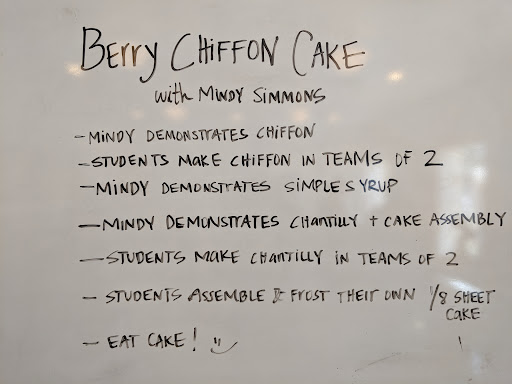 BERRY CHIFFON CAKE
with MINDY SIMMONS
- MINDY DEMONSTRATES CHIFFON
- STUDENTS MAKE CHIFFON IN TEAMS OF 2
- MINDY DEMONSTRATES SIMPLE SYRUP
- MINDY DEMONSTRATES CHANTILLY + CAKE ASSEMBLY
- STUDENTS MAKE CHANTILLY IN TEAMS OF 2
- STUDENTS ASSEMBLE & FROST THEIR OWN 1/8 SHEET
CAKE
- EAT CAKE! :)